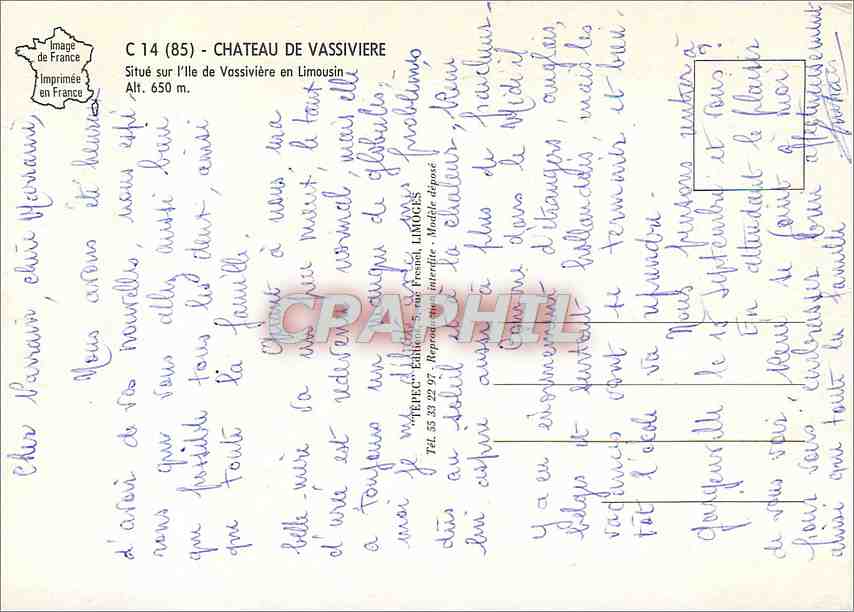 Image
de France
Imprimée
en France
C 14 (85) - CHATEAU DE VASSIVIERE
Situé sur l'Ile de Vassivière en Limousin
Alt. 650 m.
"TEPEC" Editions, 5, rue Fresnel, LIMOGES
Tél. 55 33 22 97 - Reproduction interdite - Modèle déposé
CPARPHIL
Cher Parrain, chère Marraine,
Nous avons été heureux
d'avoir de vos nouvelles, nous espé-
rons que vous allez aussi bien
que possible tous les deux, ainsi
que toute la famille.
Quant à nous ma
belle-mère va un peu mieux, le taux
d'urée est redevenu normal, mais elle
a toujours un manque de globules;
moi je me débats avec mes problèmes
dus au soleil et à la chaleur, Henri
lui aspire aussi à plus de fraîcheur
Comme dans le Midi il
y a eu énormément d'étrangers, anglais,
belges et surtout hollandais, mais les
vacances vont se terminer et bien-
tôt l'école va reprendre.
Nous pensons rentrer à
Gargenville le 15 septembre et vous ?
En attendant le plaisir
de vous voir Henri se joint à moi
pour vous embrasser bien affectueusement
ainsi que toute la famille